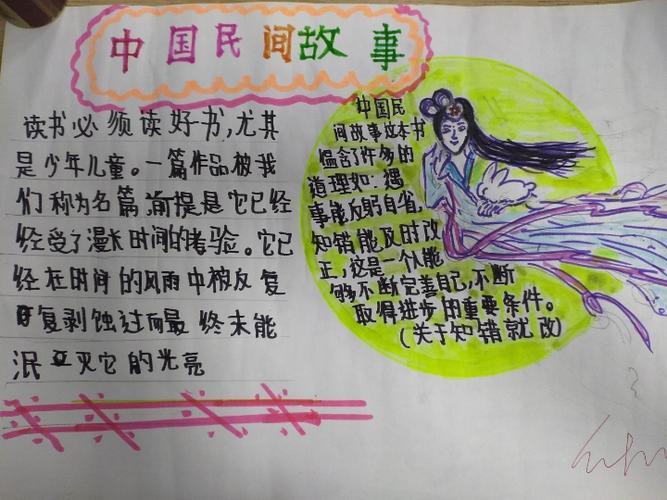 中国民间故事
读书必须读好书,尤其
是少年儿童。一篇作品被我
们称为名篇,前提是它已经
经受了漫长时间的考验。它已
经在时间的风雨中被反复
复剥蚀过而最终未能
泯灭它的光亮
中国民
间故事这本书
包含了许多的
道理如:遇
事能反躬自省,
知错能及时改
正,这是一个人能
够不断完善自己,不断
取得进步的重要条件。
(关于知错就改)